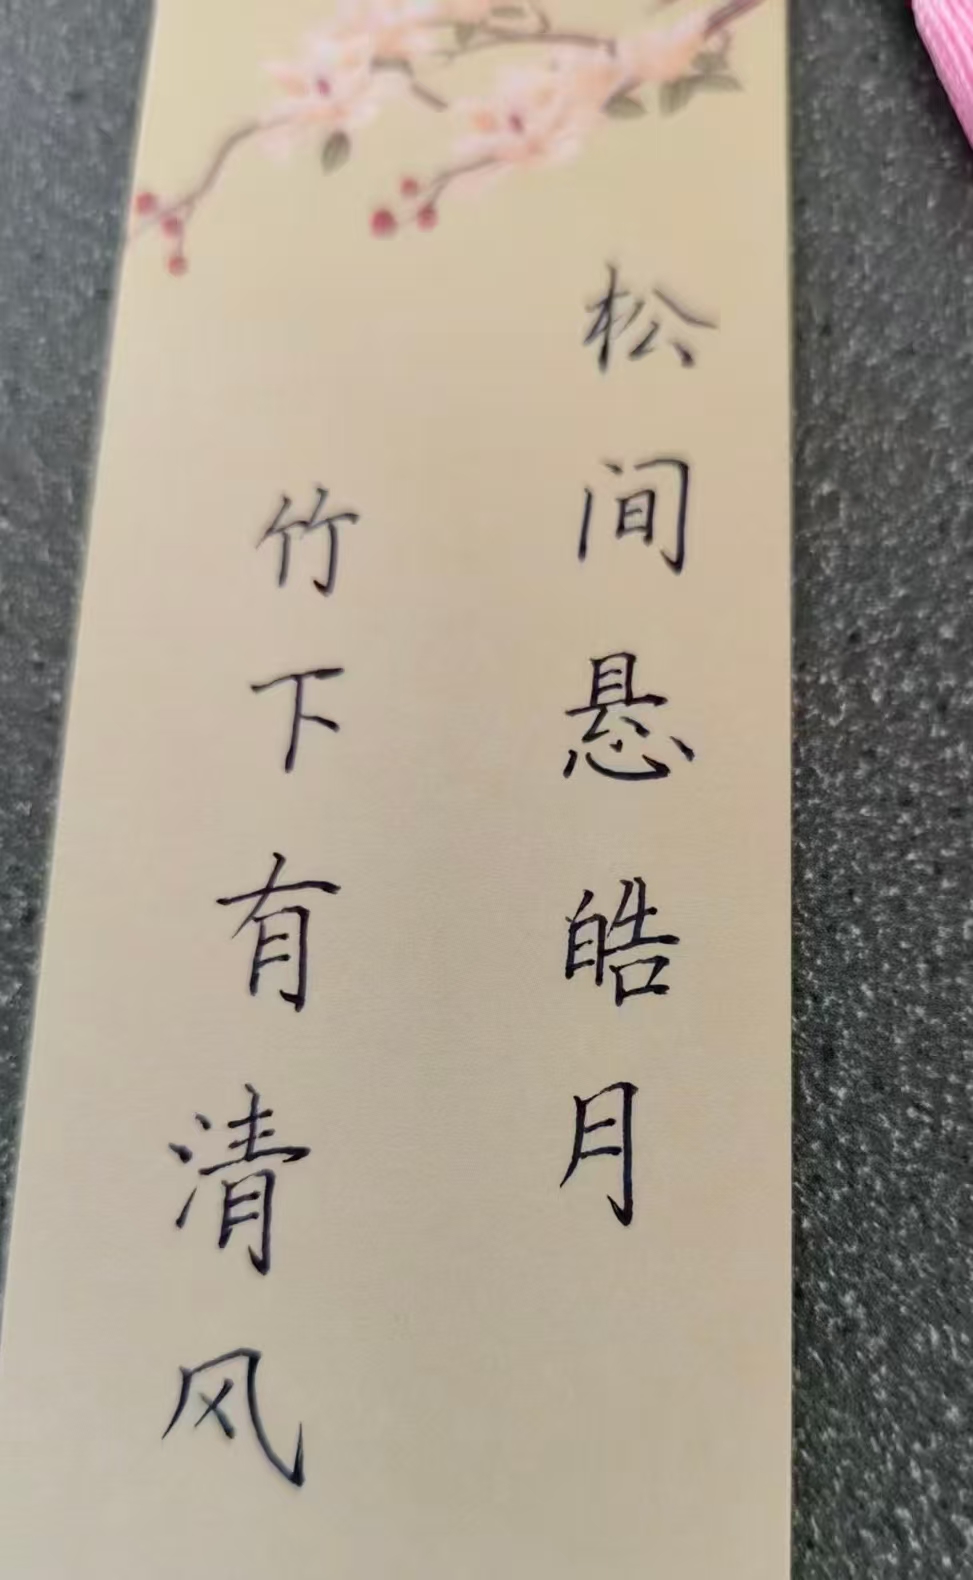 松间悬皓月
竹下有清风